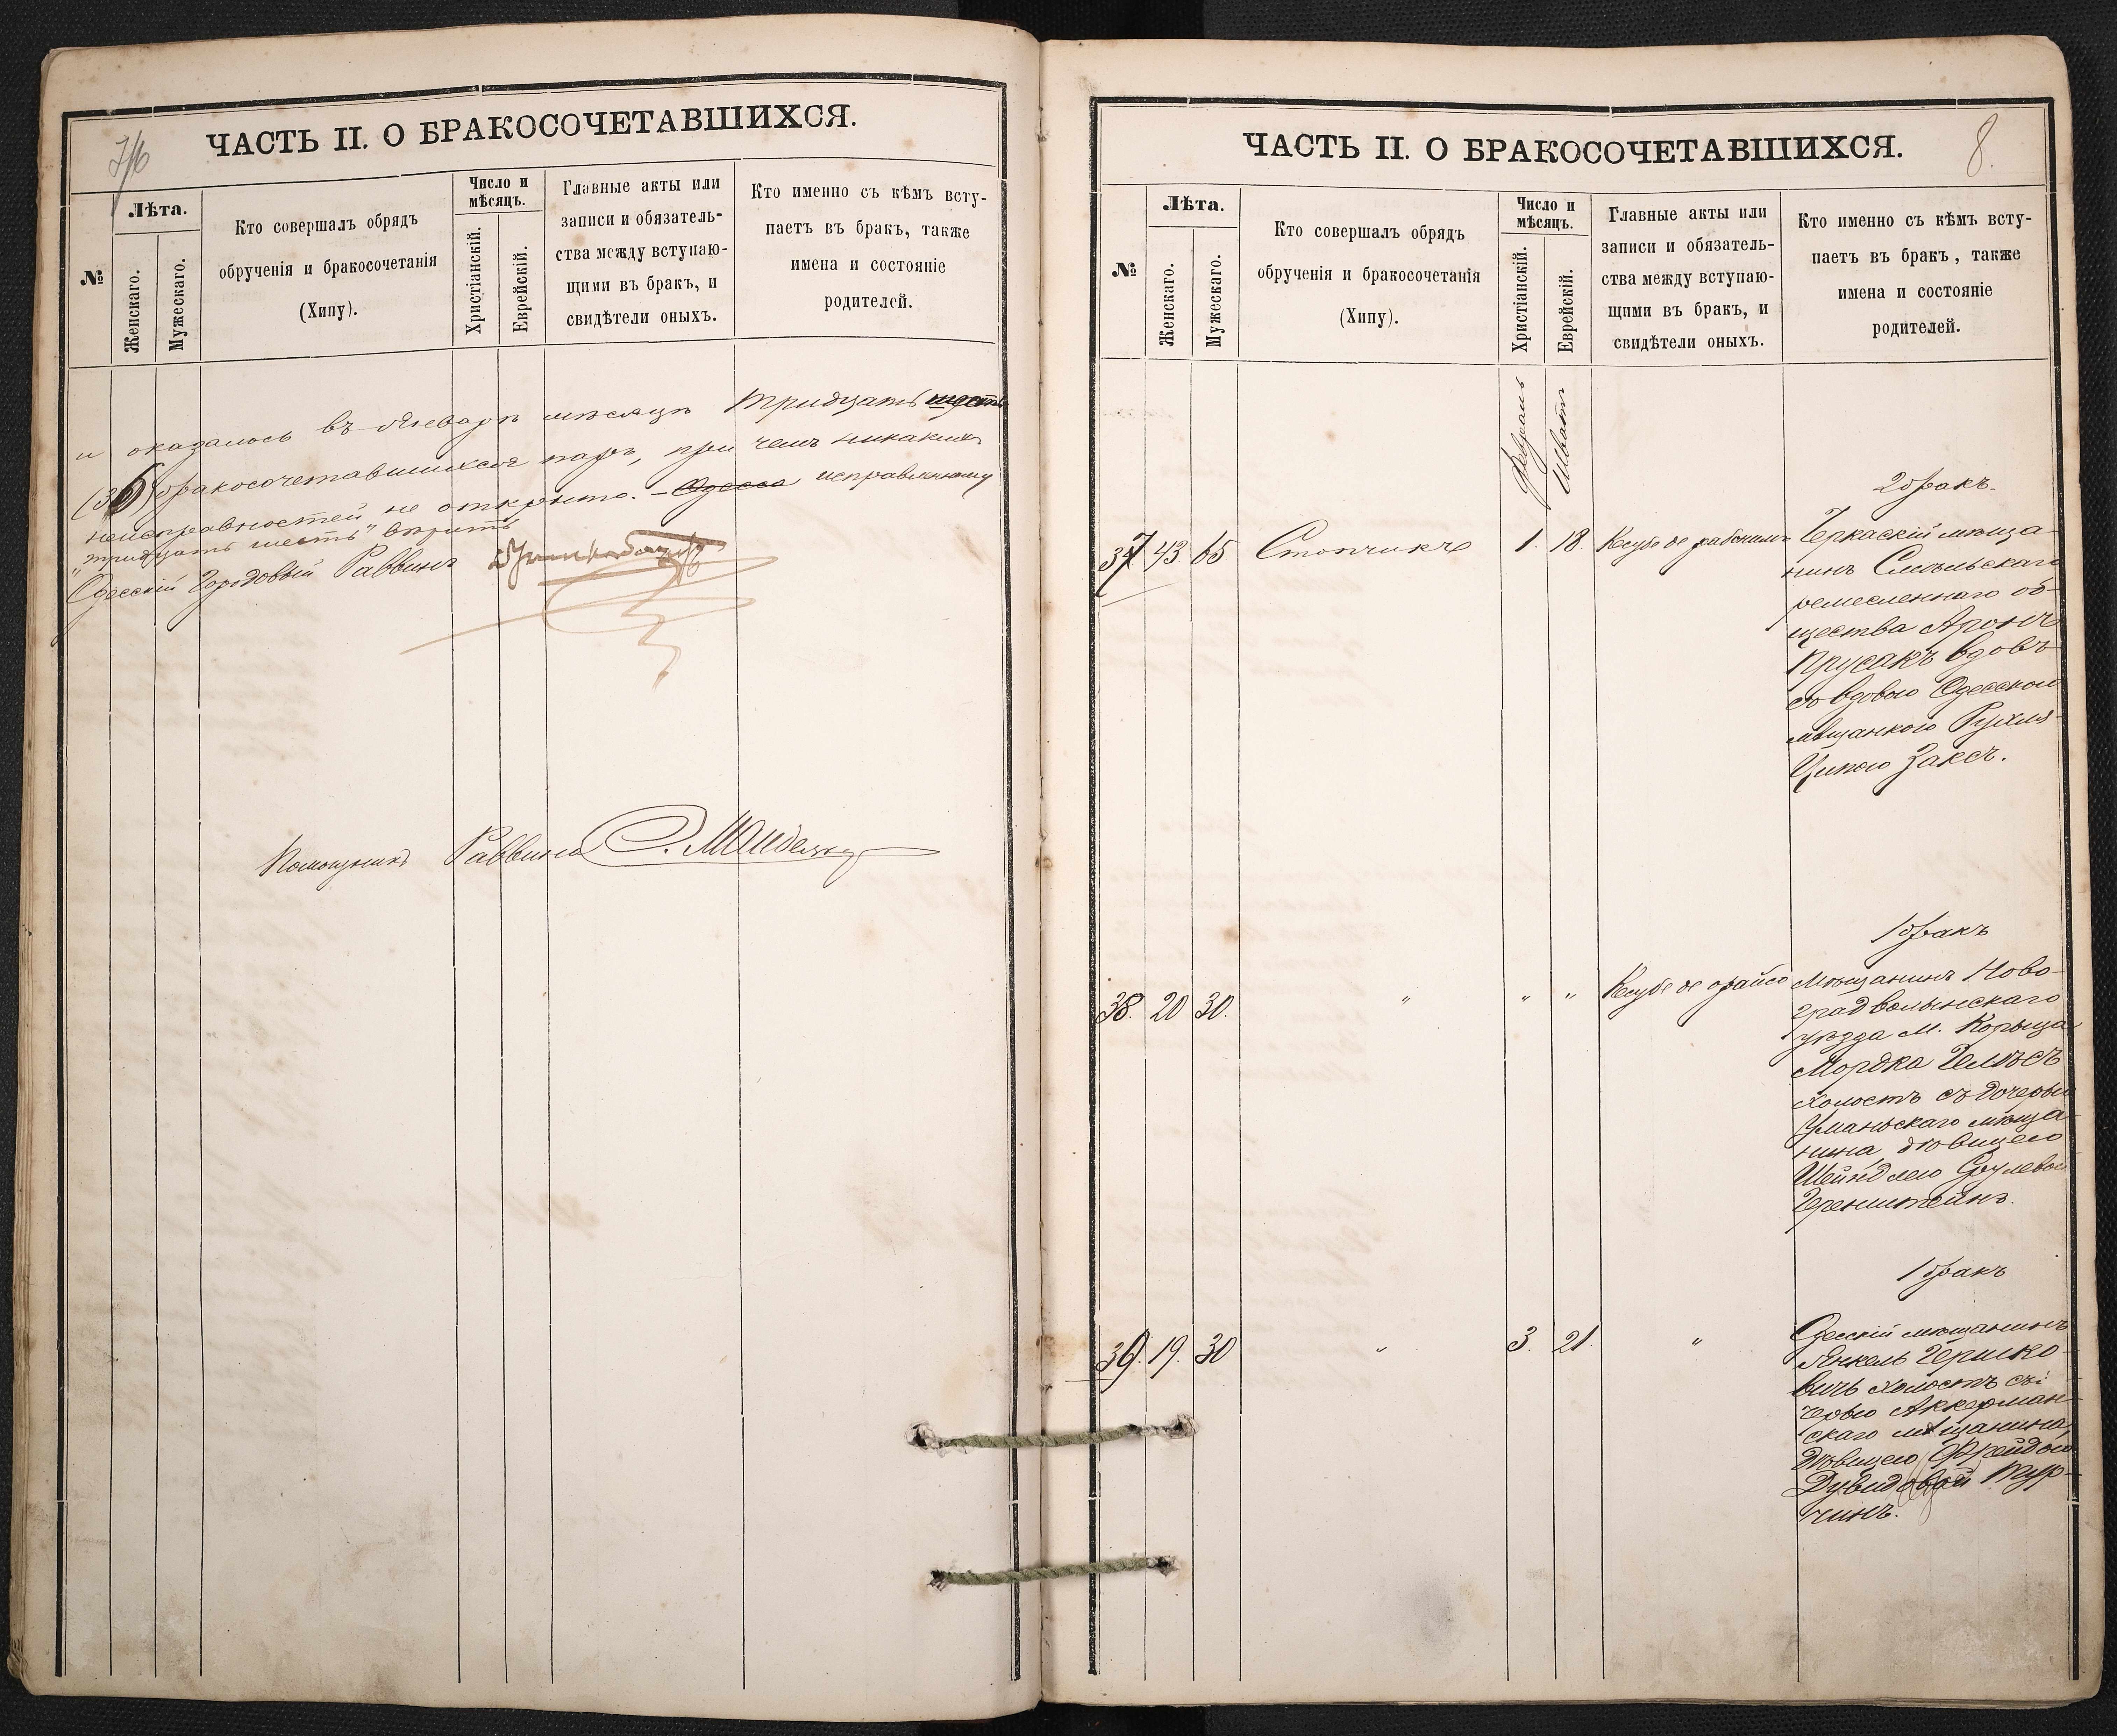 7/16
ЧАСТЬ II. О БРАКОСОЧЕТАВШИХСЯ.
№
Лѣта.
Женскаго.
Мужескаго.
Кто совершалъ обрядъ
обрученія и бракосочетанія
(Хипу).
Число и
мѣсяцъ.
Христіанскій.
Еврейскій.
Главные акты или
записи и обязатель-
ства между вступаю-
щими въ бракъ, и
свидѣтели оныхъ.
Кто именно съ кѣмъ всту-
паетъ въ бракъ, также
имена и состояніе
родителей.
и оказалось въ Январѣ мѣсяцѣ тридцать шесть
(36) бракосочетавшихся паръ, при чемъ никакихъ
неисправностей не открыто. – Одесса исправленному
„тридцать шесть" вѣрить
Одесскій Городовой Раввинъ
Помощникъ Раввина
ЧАСТЬ II. О БРАКОСОЧЕТАВШИХСЯ.
8.
№
Лѣта.
Женскаго.
Мужескаго.
Кто совершалъ обрядъ
обрученія и бракосочетанія
(Хипу).
Число и
мѣсяцъ.
Христіанскій.
Еврейскій.
Главные акты или
записи и обязатель-
ства между вступаю-
щими въ бракъ, и
свидѣтели оныхъ.
Кто именно съ кѣмъ всту-
паетъ въ бракъ, также
имена и состояніе
родителей.
Февраль
Шватъ
2 бракъ.
37 43. 65. Стопчикъ 1. 18. Кесубе де Черкаскій мѣща-
нинъ Смѣльскаго
ремесленнаго об-
щества Аронъ
Прусакъ вдовъ
со вдовою Одесскою
мѣщанкою Рухля-
Ципою Заксъ.
1 бракъ
38. 20 30. " " " Кесубе де орайсо Мѣщанинъ Ново-
градволынскаго
уѣзда м. Корыца
Мордка
холостъ съ дочерью
Уманьскаго мѣща-
нина, дѣвицею
Шейндлею Срулевой
Геренштейнъ.
1 бракъ
39. 19. 30 " 3. 21. " Одесскій мѣщанинъ
Янкель Гершко-
вичъ холостъ съ
черью Аккерман-
скаго мѣщанина,
дѣвицею Фрейдою
Дувидовой Тур-
чинъ.